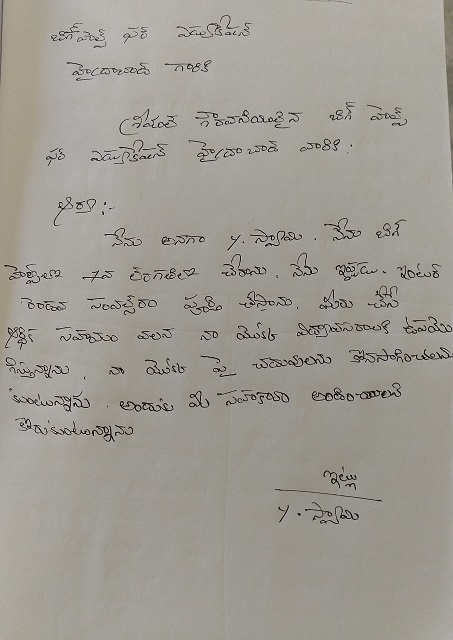 బిగ్ హెల్ప్ ఫర్ ఎడ్యుకేషన్
హైద్రాబాద్ గారికి
శ్రీమంత గౌరవనీయులైన బిగ్ హెల్ప్
ఫర్ ఎడ్యుకేషన్ హైద్రాబాద్ వారికి.
ఆర్యా:-
నేను అనగా Y. స్వామి. నేను బిగ్
హెల్ప్‌లో 7వ తరగతిలో చేరాను. నేను ఇప్పుడు. ఇంటర్
రెండవ సంవత్సరం పూర్తి చేస్తాను. మీరు చేసే
ఆర్థిక సహాయం వలన నా యొక్క విద్యావసరాలకి ఉపయో
గిస్తున్నాను. నా యొక్క పై చదువులను కొనసాగించాలను
కుంటున్నాను. అందుకు మీ సహకారం అందించాలని
కోరుకుంటున్నాను
ఇట్లు
Y. స్వామి